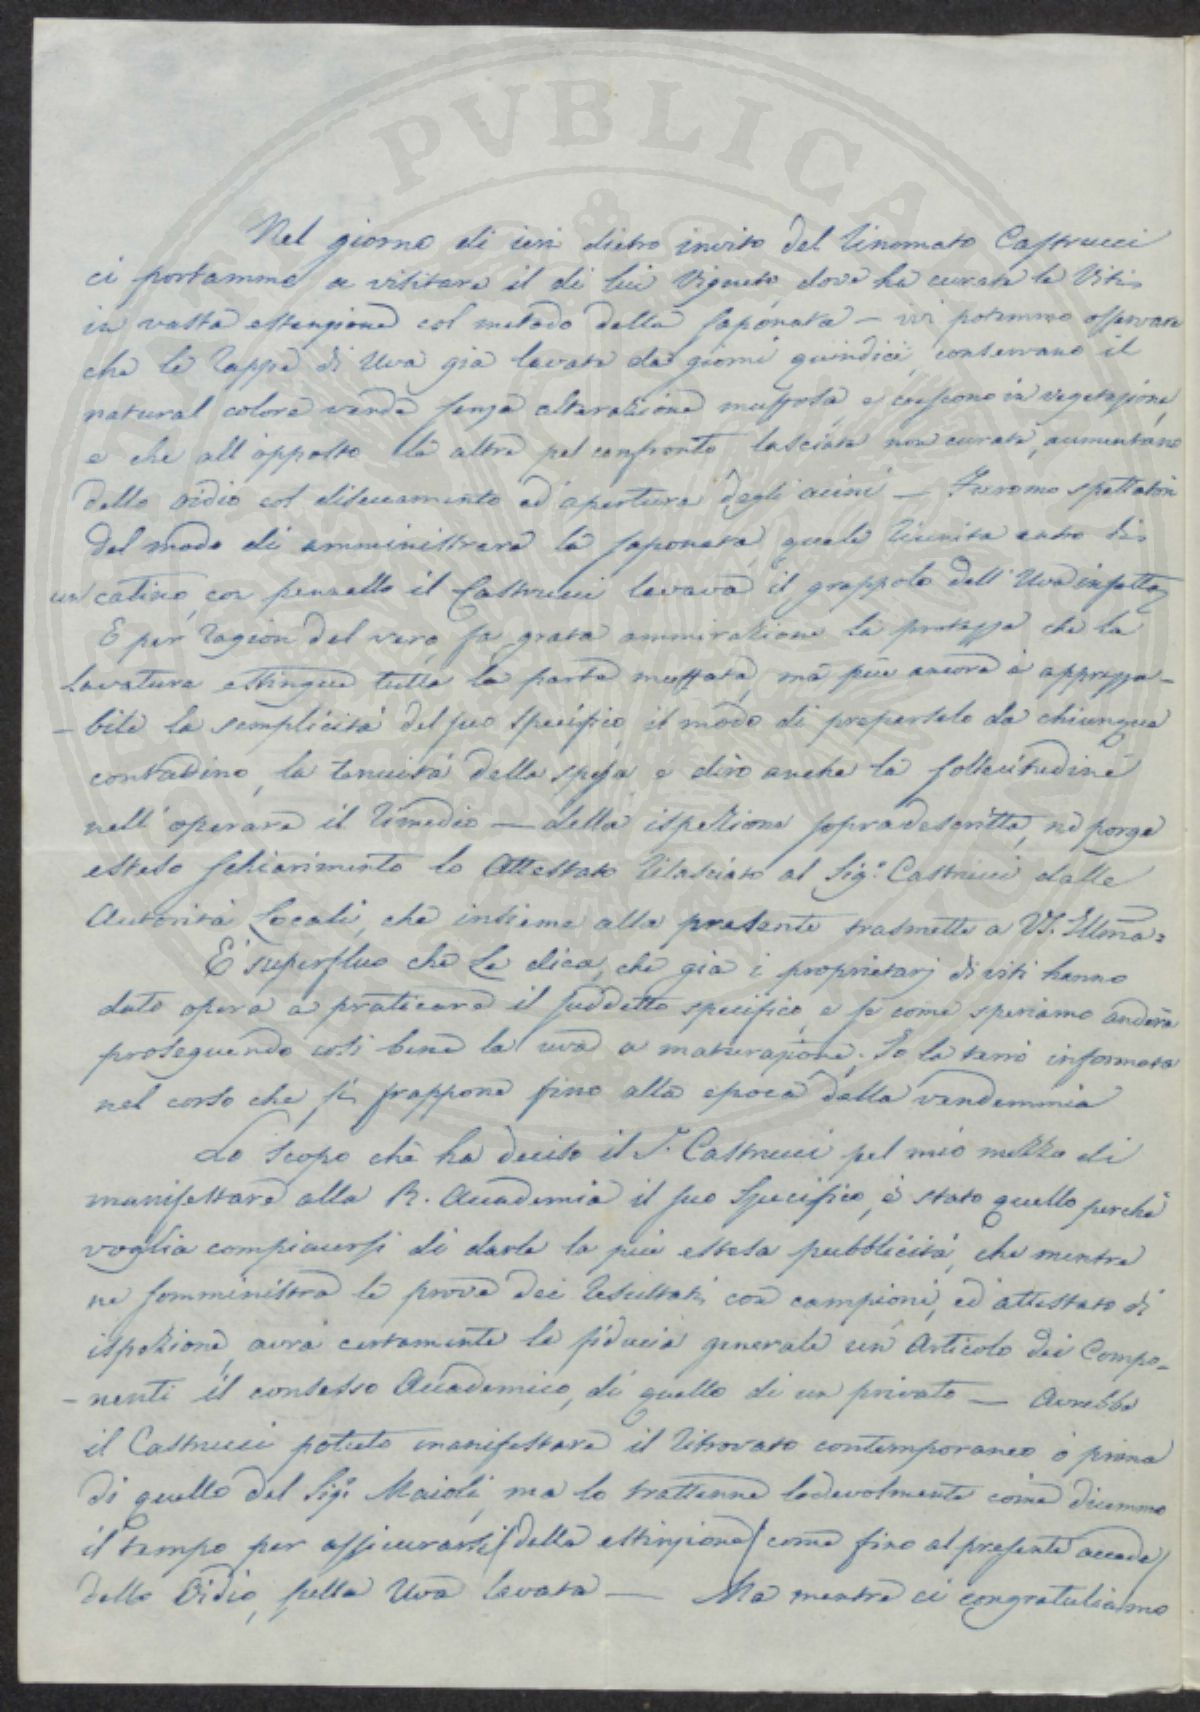 PVBLICA
Nel giorno di ieri dietro invito del rinomato Castrucci
ci portammo a visitare il di lui Vigneto, dove ha curate le Viti
in vasta estenzione col metodo della saponata — ivi potemmo osservare
che le rappe di Uva già lavate da giorni quindici, conservano il
natural colore verde senza alterazione muffosa, e crescono in vegetazione,
e che all'opposto le altre pel confronto lasciate non curate, aumentano
dello oidio col diseccamento ed apertura degli acini — Furomo spettatori
del modo di amministrare la saponata, quale riunita entro di
un catino, con pennello il Castrucci lavava il grappolo dell'Uva infetta
E per ragion del vero, fa grata ammirazione la prestezza che la
lavatura estingue tutta la parte muffata, ma più ancora è apprezza-
-bile la semplicità del suo specifico, il modo di preperselo da chiunque
contadino, la tenuità della spesa, e dirò anche la sollecitudine
nell'operare il rimedio — della ispezione sopradescritta, ne porge
esteso schiarimento lo Attestato rilasciato al Sig.r Castrucci dalle
Autorità Locali, che insieme alla presente trasmette a VS. Illma=
È superfluo che Le dica, che già i proprietarj di viti hanno
dato opera a praticare il suddetto specifico, e se come speriamo anderà
proseguendo così bene la uva a maturazione. Io la terrò informata
nel corso che si frappone fino alla epoca della vendemmia
Lo scopo che ha deciso il S. Castrucci pel mio mezzo di
manifestare alla R. Accademia il suo Specifico, è stato quello perchè
voglia compiacersi di darle la più estesa pubblicità, che mentre
ne somministra le prove dei resultati con campioni, ed attestato di
ispezione, avrà certamente la fiducia generale un Articolo dei Compo-
-nenti il consesso Accademico, di quello di un privato — Avrebbe
il Castrucci potuto manifestare il ritrovato contemporaneo o prima
di quello del Sig.r Maioli, ma lo trattenne lodevolmente come dicemmo
il tempo per assicurarsi (della estinzione (come fino al presente accade)
dello Oidio, sulla Uva lavata — Ma mentre ci congratuliamo